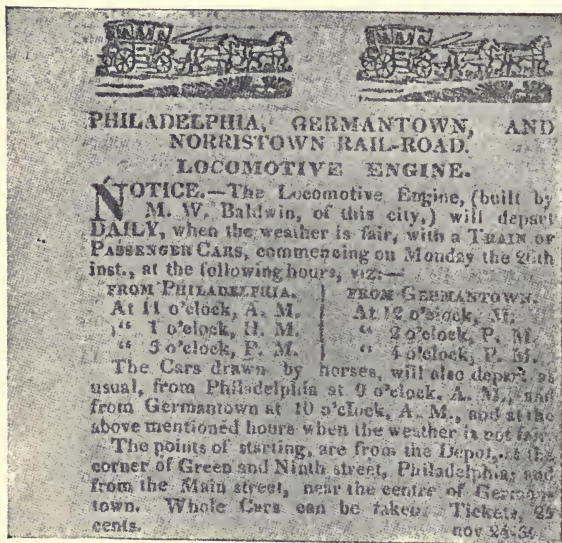 PHILADELPHIA, GERMANTOWN, AND
NORRISTOWN RAIL-ROAD.
LOCOMOTIVE ENGINE.
NOTICE.—The Locomotive Engine, (built by
M. W. Baldwin, of this city,) will depart
DAILY, when the weather is fair, with a TRAIN OF
PASSENGER CARS, commencing on Monday the 26th
inst., at the following hours, viz:—
FROM PHILADELPHIA.
At 11 o'clock, A. M.
" 1 o'clock, P. M.
" 3 o'clock, P. M.
FROM GERMANTOWN.
At 12 o'clock, M.
" 2 o'clock, P. M.
" 4 o'clock, P. M.
The Cars drawn by horses, will also depart as
usual, from Philadelphia at 9 o'clock, A. M., and
from Germantown at 10 o'clock, A. M., and at the
above mentioned hours when the weather is not fair.
The points of starting, are from the Depot, at the
corner of Green and Ninth street, Philadelphia; and
from the Main street, near the centre of German-
town. Whole Cars can be taken. Tickets, 25
cents.
nov 24-